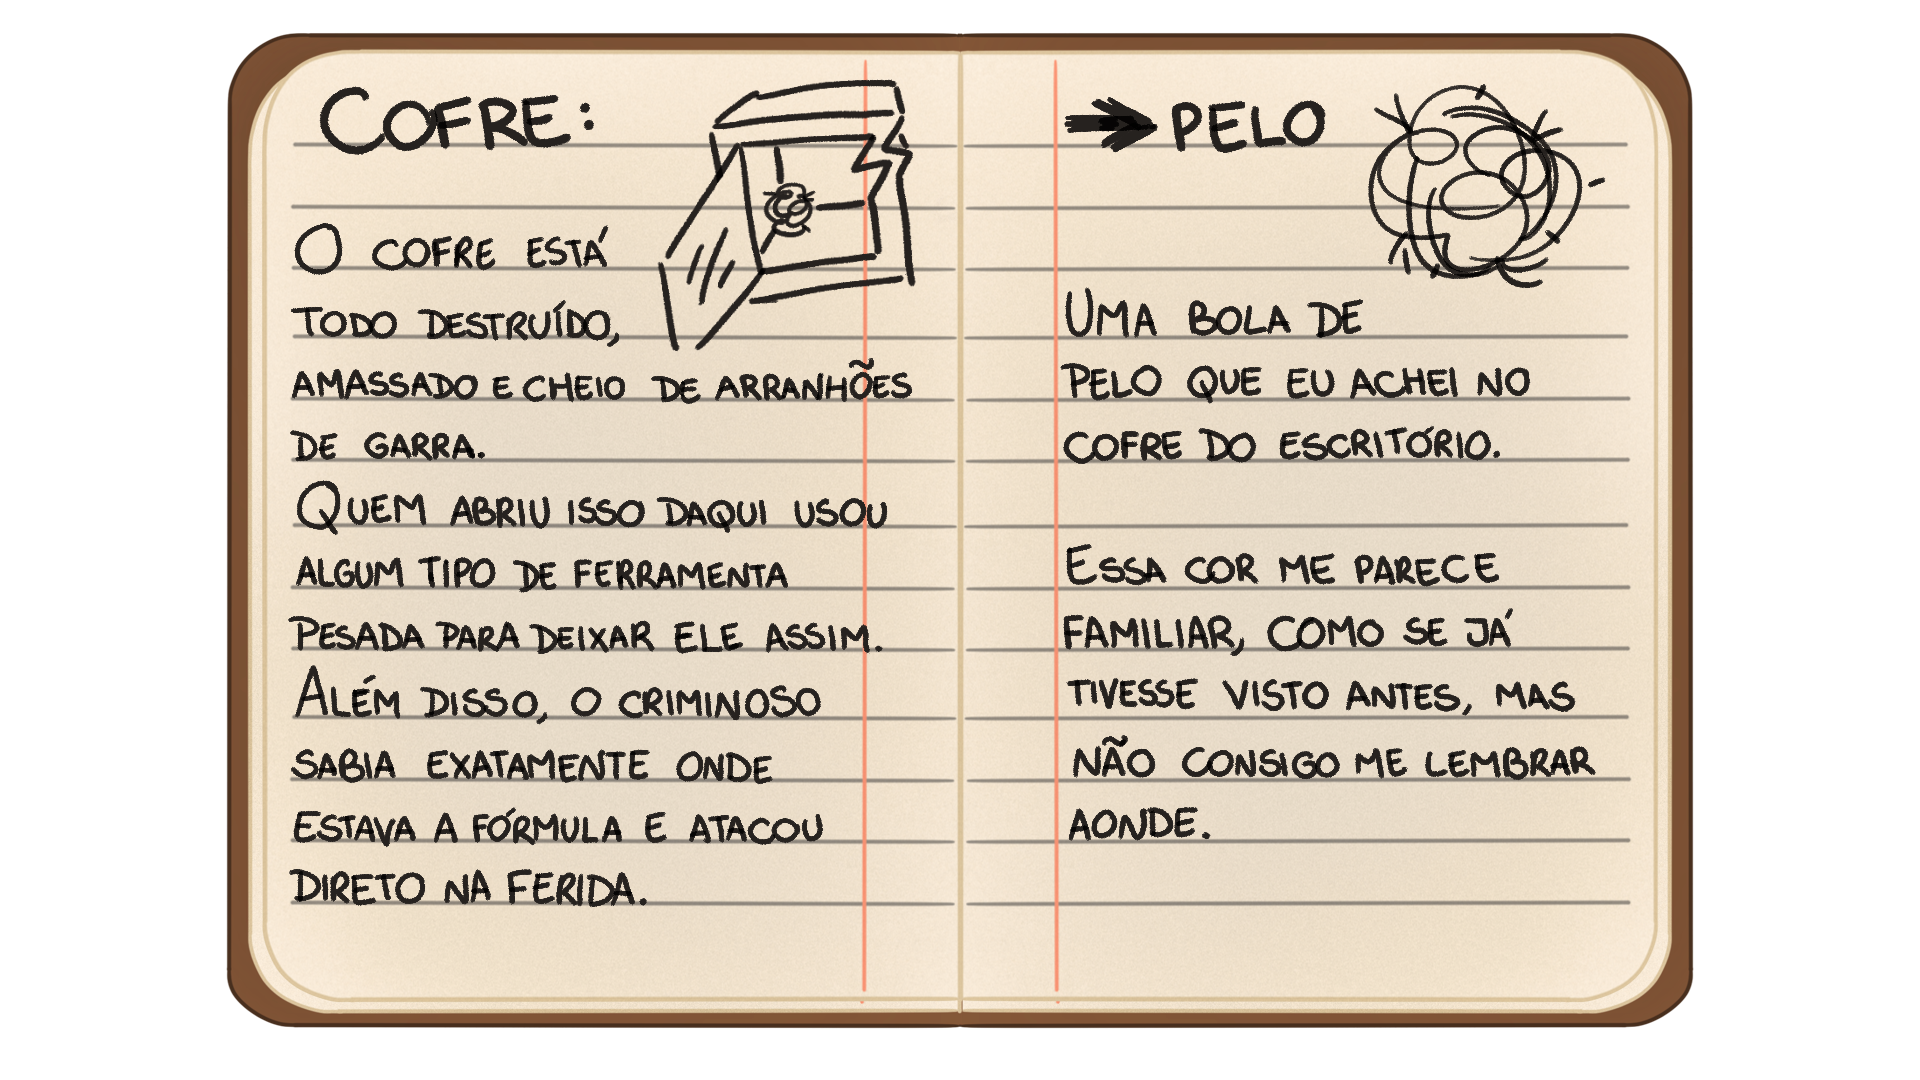 COFRE:
O COFRE ESTÁ
TODO DESTRUÍDO,
AMASSADO E CHEIO DE ARRANHÕES
DE GARRA.
QUEM ABRIU ISSO DAQUI USOU
ALGUM TIPO DE FERRAMENTA
PESADA PARA DEIXAR ELE ASSIM.
ALÉM DISSO, O CRIMINOSO
SABIA EXATAMENTE ONDE
ESTAVA A FÓRMULA E ATACOU
DIRETO NA FERIDA.
➔ PELO
UMA BOLA DE
PELO QUE EU ACHEI NO
COFRE DO ESCRITÓRIO.
ESSA COR ME PARECE
FAMILIAR, COMO SE JÁ
TIVESSE VISTO ANTES, MAS
NÃO CONSIGO ME LEMBRAR
AONDE.